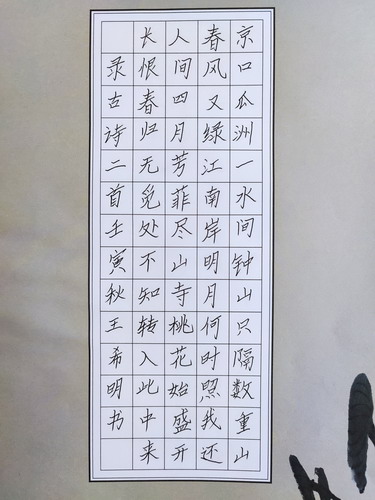 京口瓜洲一水间钟山只隔数重山
春风又绿江南岸明月何时照我还
人间四月芳菲尽山寺桃花始盛开
长恨春归无觅处不知转入此中来
录古诗二首壬寅秋王希明书